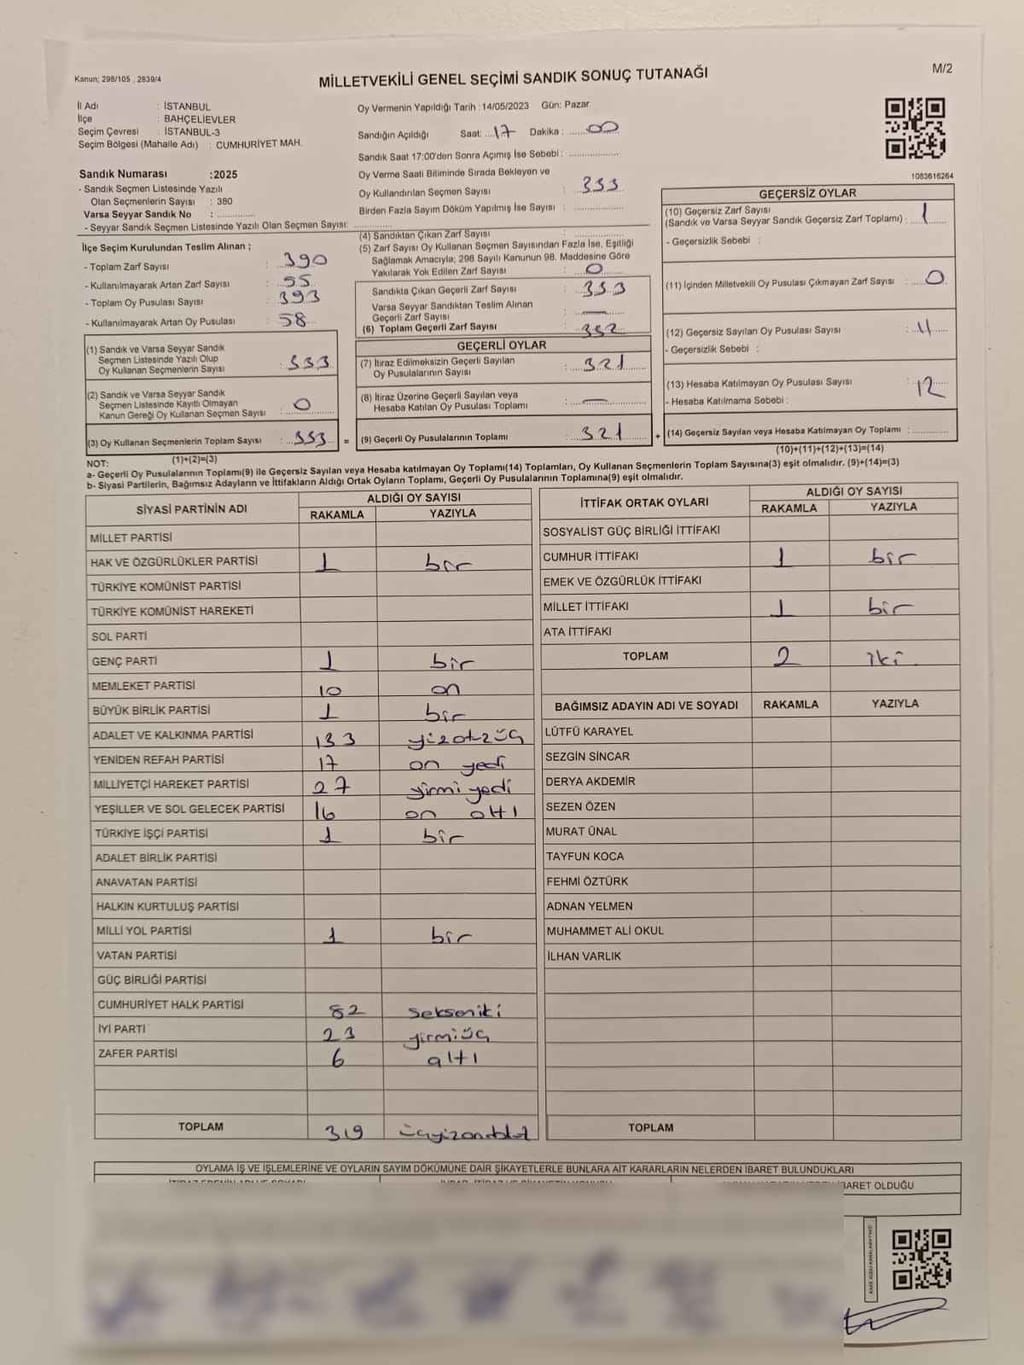 Kanun; 298/105 , 2839/4
MİLLETVEKİLİ GENEL SEÇİMİ SANDIK SONUÇ TUTANAĞI
M/2
İl Adı : İSTANBUL
İlçe : BAHÇELİEVLER
Seçim Çevresi : İSTANBUL-3
Seçim Bölgesi (Mahalle Adı) : CUMHURİYET MAH.
Sandık Numarası :2025
- Sandık Seçmen Listesinde Yazılı
Olan Seçmenlerin Sayısı : 380
Varsa Seyyar Sandık No : ..............
- Seyyar Sandık Seçmen Listesinde Yazılı Olan Seçmen Sayısı: ..............
Oy Vermenin Yapıldığı Tarih :14/05/2023 Gün: Pazar
Sandığın Açıldığı Saat: 17 Dakika : 00
Sandık Saat 17:00'den Sonra Açımış İse Sebebi : ..............
Oy Verme Saati Bitiminde Sırada Bekleyen ve
Oy Kullandırılan Seçmen Sayısı : 333
Birden Fazla Sayım Döküm Yapılmış İse Sayısı : ..............
1083616264
İlçe Seçim Kurulundan Teslim Alınan ;
- Toplam Zarf Sayısı : 390
- Kullanılmayarak Artan Zarf Sayısı : 55
- Toplam Oy Pusulası Sayısı : 393
- Kullanılmayarak Artan Oy Pusulası : 58
(1) Sandık ve Varsa Seyyar Sandık
Seçmen Listesinde Yazılı Olup
Oy Kullanan Seçmenlerin Sayısı : 333
(2) Sandık ve Varsa Seyyar Sandık
Seçmen Listesinde Kayıtlı Olmayan
Kanun Gereği Oy Kullanan Seçmen Sayısı : 0
(3) Oy Kullanan Seçmenlerin Toplam Sayısı : 333 =
(1)+(2)=(3)
(4) Sandıktan Çıkan Zarf Sayısı : ..............
(5) Zarf Sayısı Oy Kullanan Seçmen Sayısından Fazla İse, Eşitliği
Sağlamak Amacıyla, 298 Sayılı Kanunun 98. Maddesine Göre
Yakılarak Yok Edilen Zarf Sayısı : 0
Sandıkta Çıkan Geçerli Zarf Sayısı : 333
Varsa Seyyar Sandıktan Teslim Alınan
Geçerli Zarf Sayısı : —
(6) Toplam Geçerli Zarf Sayısı : 332
GEÇERLİ OYLAR
(7) İtiraz Edilmeksizin Geçerli Sayılan
Oy Pusulalarının Sayısı : 321
(8) İtiraz Üzerine Geçerli Sayılan veya
Hesaba Katılan Oy Pusulası Toplamı : —
(9) Geçerli Oy Pusulalarının Toplamı : 321 +
GEÇERSİZ OYLAR
(10) Geçersiz Zarf Sayısı
(Sandık ve Varsa Seyyar Sandık Geçersiz Zarf Toplamı) : 1
- Geçersizlik Sebebi :
(11) İçinden Milletvekili Oy Pusulası Çıkmayan Zarf Sayısı : 0
(12) Geçersiz Sayılan Oy Pusulası Sayısı : 11
- Geçersizlik Sebebi :
(13) Hesaba Katılmayan Oy Pusulası Sayısı : 12
- Hesaba Katılmama Sebebi :
(14) Geçersiz Sayılan veya Hesaba Katılmayan Oy Toplamı : ..............
(10)+(11)+(12)+(13)=(14)
NOT:
a- Geçerli Oy Pusulalarının Toplamı(9) ile Geçersiz Sayılan veya Hesaba katılmayan Oy Toplamı(14) Toplamları, Oy Kullanan Seçmenlerin Toplam Sayısına(3) eşit olmalıdır. (9)+(14)=(3)
b- Siyasi Partilerin, Bağımsız Adayların ve İttifakların Aldığı Oyların Toplamı, Geçerli Oy Pusulalarının Toplamına(9) eşit olmalıdır.
SİYASİ PARTİNİN ADI ALDIĞI OY SAYISI
RAKAMLA YAZIYLA
MİLLET PARTİSİ
HAK VE ÖZGÜRLÜKLER PARTİSİ 1 bir
TÜRKİYE KOMÜNİST PARTİSİ
TÜRKİYE KOMÜNİST HAREKETİ
SOL PARTİ
GENÇ PARTİ 1 bir
MEMLEKET PARTİSİ 10 on
BÜYÜK BİRLİK PARTİSİ 1 bir
ADALET VE KALKINMA PARTİSİ 133 yüzotzüç
YENİDEN REFAH PARTİSİ 17 on yedi
MİLLİYETÇİ HAREKET PARTİSİ 27 yirmi yedi
YEŞİLLER VE SOL GELECEK PARTİSİ 16 on altı
TÜRKİYE İŞÇİ PARTİSİ 1 bir
ADALET BİRLİK PARTİSİ
ANAVATAN PARTİSİ
HALKIN KURTULUŞ PARTİSİ
MİLLİ YOL PARTİSİ 1 bir
VATAN PARTİSİ
GÜÇ BİRLİĞİ PARTİSİ
CUMHURİYET HALK PARTİSİ 82 sekseniki
İYİ PARTİ 23 yirmiüç
ZAFER PARTİSİ 6 altı
TOPLAM 319
İTTİFAK ORTAK OYLARI ALDIĞI OY SAYISI
RAKAMLA YAZIYLA
SOSYALİST GÜÇ BİRLİĞİ İTTİFAKI
CUMHUR İTTİFAKI 1 bir
EMEK VE ÖZGÜRLÜK İTTİFAKI
MİLLET İTTİFAKI 1 bir
ATA İTTİFAKI
TOPLAM 2 iki
BAĞIMSIZ ADAYIN ADI VE SOYADI RAKAMLA YAZIYLA
LÜTFÜ KARAYEL
SEZGİN SİNCAR
DERYA AKDEMİR
SEZEN ÖZEN
MURAT ÜNAL
TAYFUN KOCA
FEHMİ ÖZTÜRK
ADNAN YELMEN
MUHAMMET ALİ OKUL
İLHAN VARLIK
TOPLAM
OYLAMA İŞ VE İŞLEMLERİNE VE OYLARIN SAYIM DÖKÜMÜNE DAİR ŞİKAYETLERLE BUNLARA AİT KARARLARIN NELERDEN İBARET BULUNDUKLARI
İBARET OLDUĞU